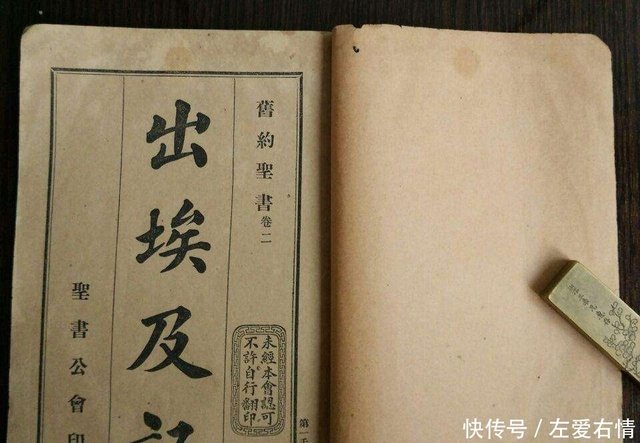 舊約聖書卷二
出埃及記
聖書公會印
未經本會認可
不許自行翻印
第
快传号／左爱右情